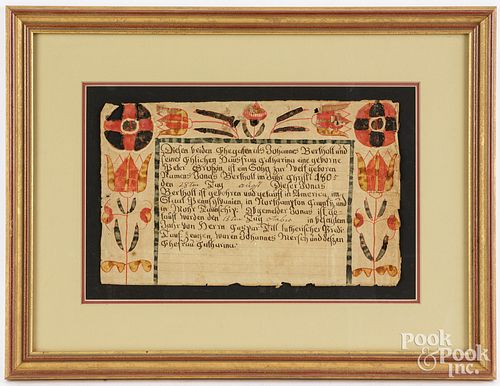 Diesen beiden Ehegatten als Johannes Bertholt und
seiner Ehlichen Hausfrau Catharina eine geborne
ist ein Sohn zur Welt geboren
Namens Jonas Bertholt im Jahr Christi 180
den Tag Dieser Jonas
Bertholt ist gebohren und getauft in America, im
Staat Pennsylvanien, in Northampton County und
in Township. Obgemelder Jonas ist ge-
tauft worden den Tag in besagtem
Jahr von Herrn Caspar Dill lutherischer Predi-
Tauf Zeugen waren Johannes und dessen
Ehefrau Catharina.
Pook
& Pook
Inc.